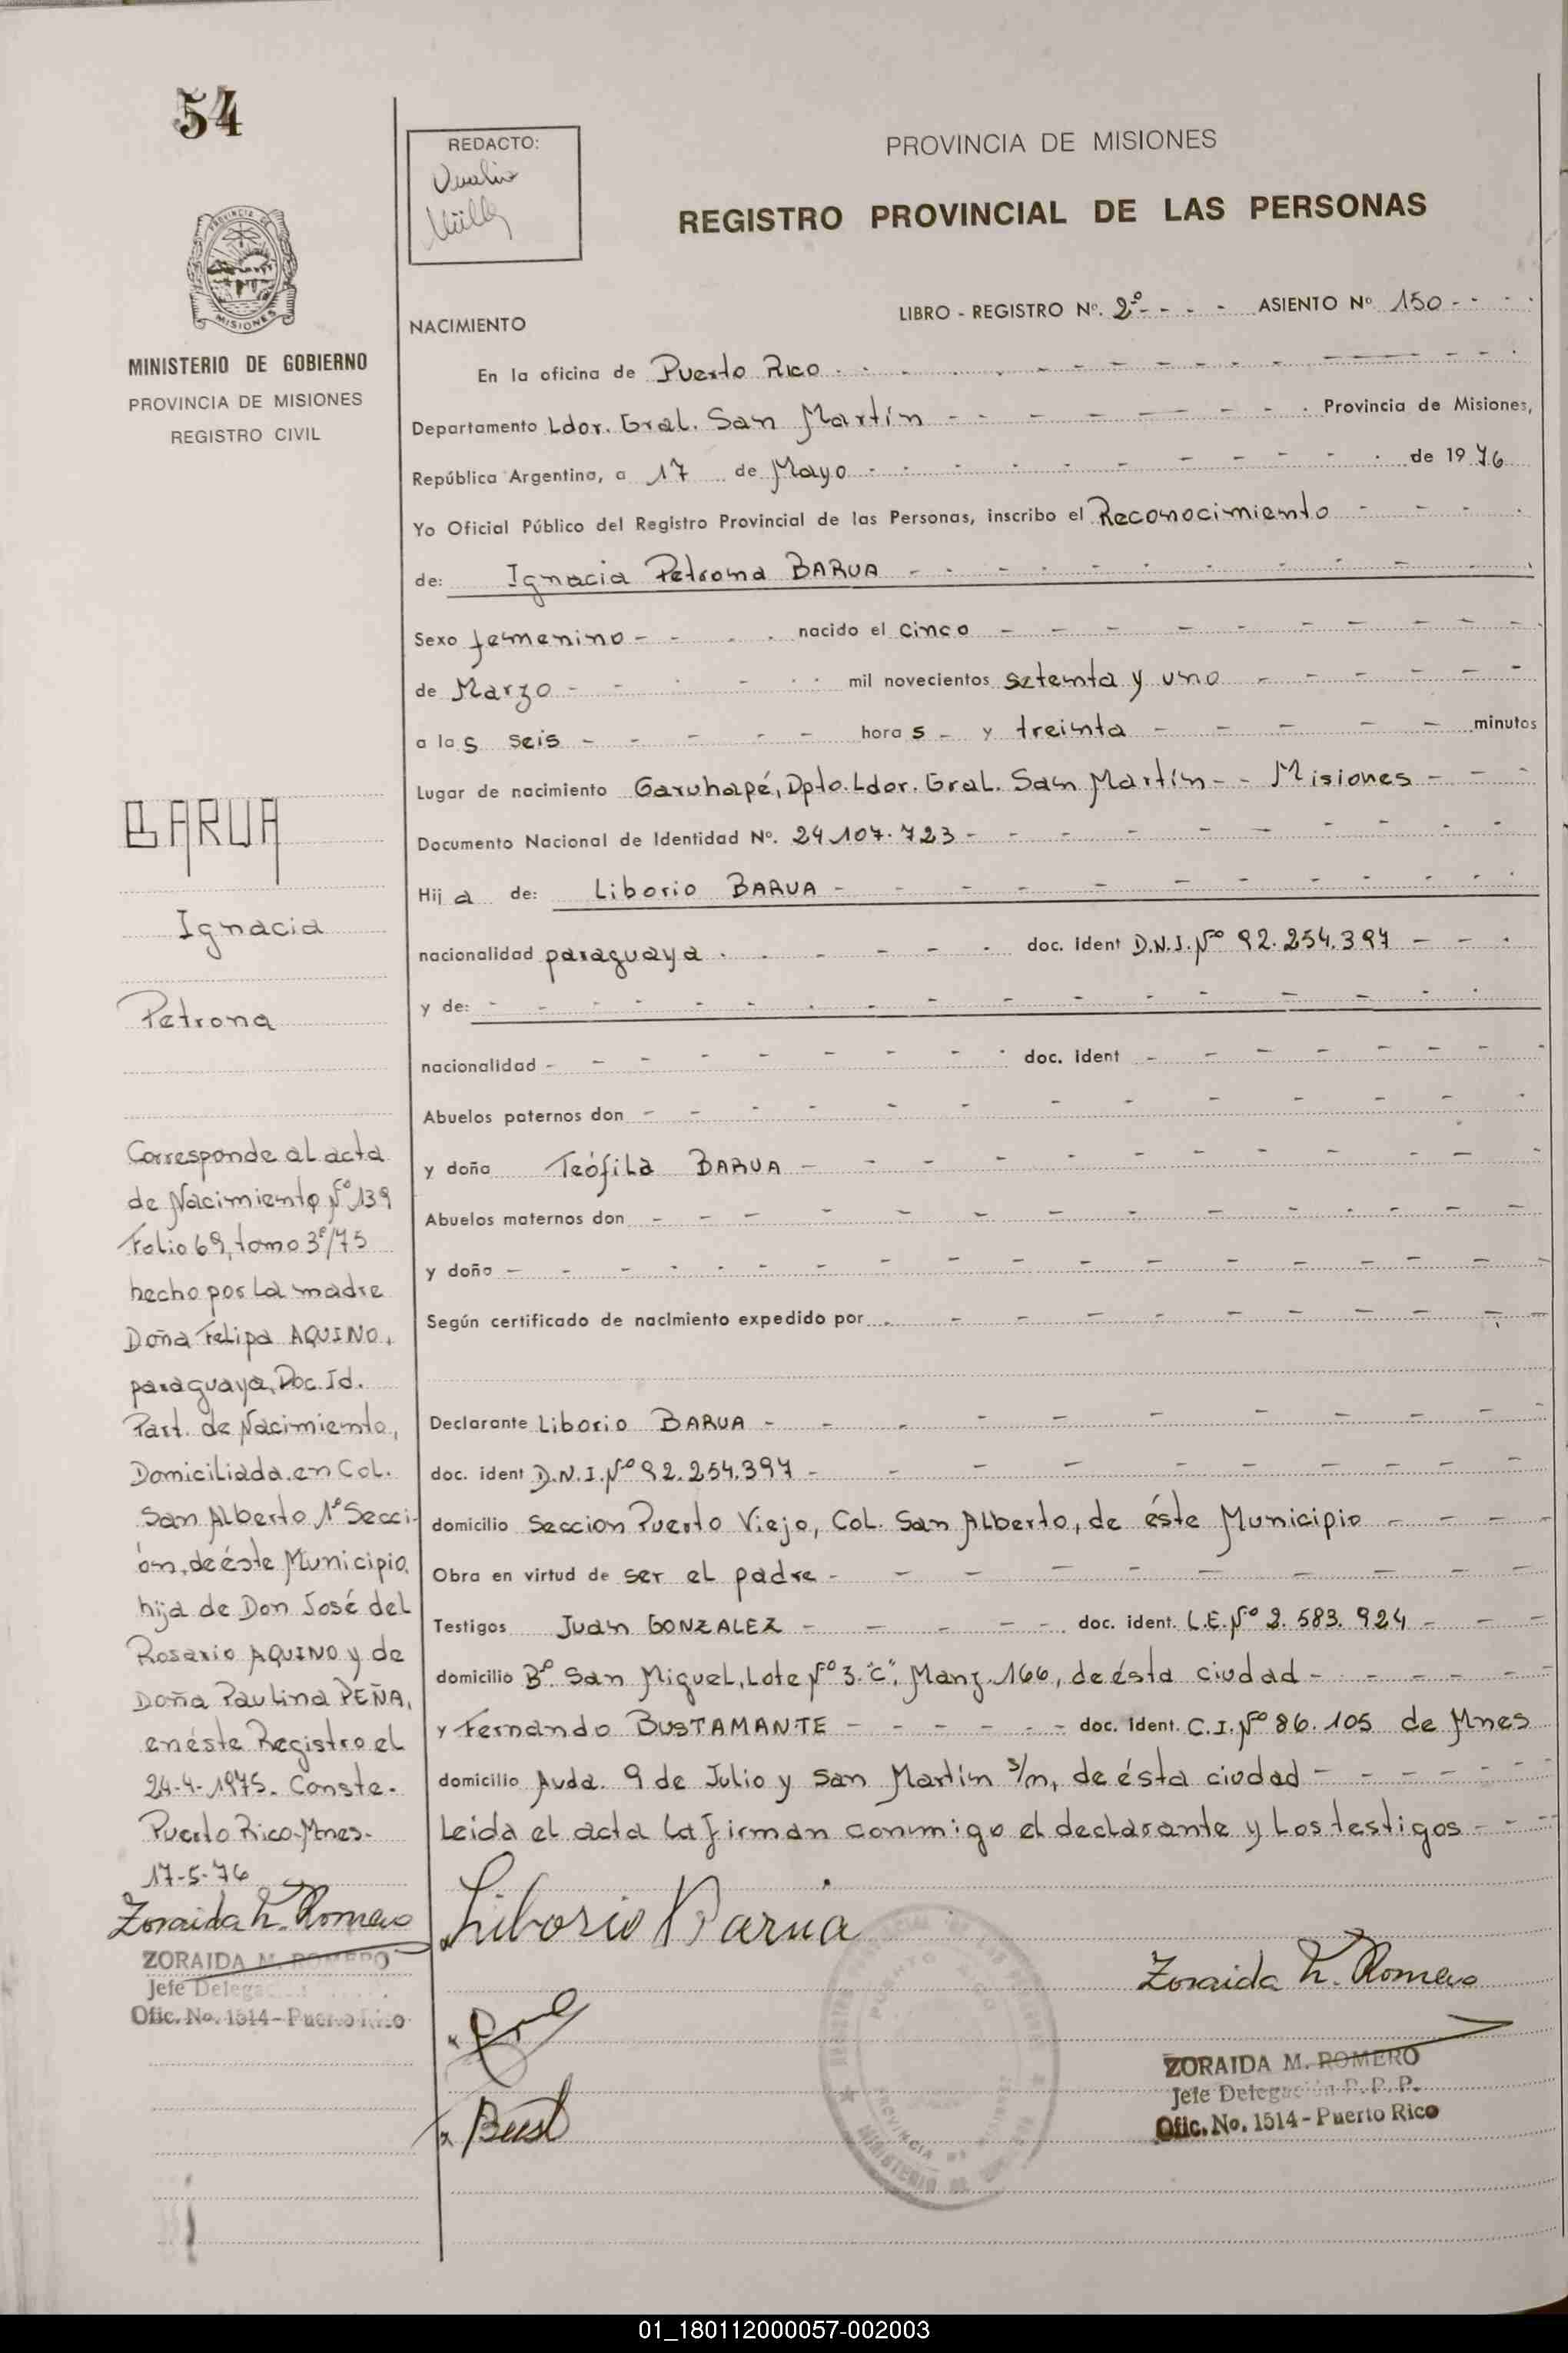 54
REDACTO:
MISIONES
MINISTERIO DE GOBIERNO
PROVINCIA DE MISIONES
REGISTRO CIVIL
PROVINCIA DE MISIONES
REGISTRO PROVINCIAL DE LAS PERSONAS
NACIMIENTO
LIBRO - REGISTRO Nº. 2º - - - ASIENTO Nº 150 - - - -
En la oficina de Puerto Rico
Departamento Ldor. Gral. San Martín - - - Provincia de Misiones,
República Argentina, a 17 de Mayo - - - de 1976
Yo Oficial Público del Registro Provincial de las Personas, inscribo el Reconocimiento
de: Ignacia Petrona BARUA
Sexo femenino - - nacido el cinco
de Marzo - - mil novecientos setenta y uno
a las seis - - - horas - y treinta - - - minutos
Lugar de nacimiento Garuhapé, Dpto. Ldor. Gral. San Martín - - Misiones - - -
Documento Nacional de Identidad Nº. 24.107.723 -
Hija de: Liborio BARUA -
nacionalidad paraguaya - - - doc. ident D.N.I. Nº 92.254.397 - - -
y de: - - -
nacionalidad - - - doc. ident - - -
Abuelos paternos don - - -
y doña Teófila BARUA -
Abuelos maternos don - - -
y doña - - -
Según certificado de nacimiento expedido por - - -
Declarante Liborio BARUA -
doc. ident D.N.I. Nº 92.254.397 -
domicilio Seccion Puerto Viejo, Col. San Alberto, de éste Municipio - - -
Obra en virtud de ser el padre -
Testigos Juan GONZALEZ - - - doc. ident. L.E. Nº 2.583.924 - - -
domicilio Bº. San Miguel, Lote Nº 3 "C", Manz. 166, de ésta ciudad -
y Fernando BUSTAMANTE - - - doc. Ident. C.I. Nº 86.105 de Mnes
domicilio Avda. 9 de Julio y San Martín s/n, de ésta ciudad - - -
Leida el acta la firman conmigo el declarante y los testigos - - -
BARUA
Ignacia
Petrona
Corresponde al acta
de Nacimiento Nº 139
Folio 69, tomo 3º/75
hecho por la madre
Doña Felipa AQUINO,
paraguaya, Doc. Id.
Part. de Nacimiento,
Domiciliada en Col.
San Alberto 1º Secci-
ón, de éste Municipio,
hija de Don José del
Rosario AQUINO y de
Doña Paulina PEÑA,
en éste Registro el
24-4-1975. Conste.
Puerto Rico-Mnes-
17-5-76
Zoraida M. Romero
ZORAIDA M. ROMERO
Jefe Delega
Ofic. No. 1514 - Puerto Rico
Liborio Barua
Zoraida M. Romero
ZORAIDA M. ROMERO
Jefe Delegación R.P.P.
Ofic. No. 1514 - Puerto Rico
PUERTO RICO
PROVINCIA DE MISIONES
01_180112000057-002003